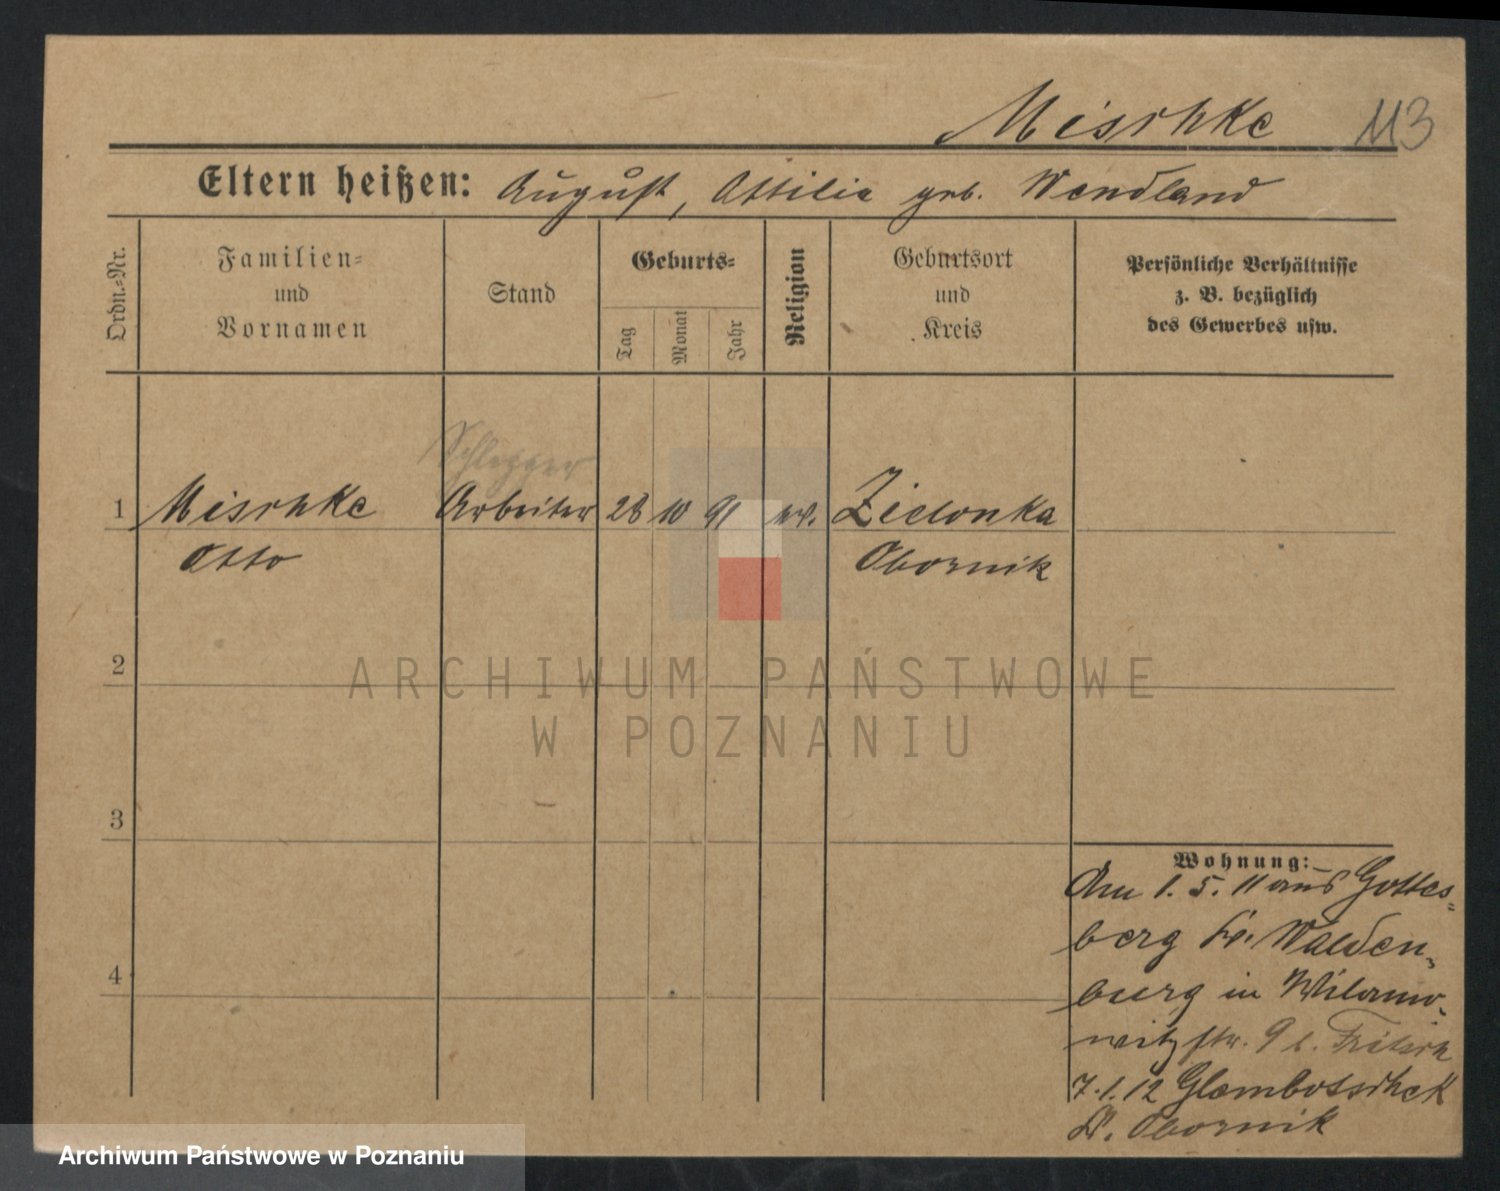 Mischke 113
Eltern heißen: August, Ottilie geb. Wendland
Ordn.-Nr.
Familien-
und
Vornamen
Stand
Geburts-
Tag
Monat
Jahr
Religion
Geburtsort
und
Kreis
Persönliche Verhältnisse
z. B. bezüglich
des Gewerbes usw.
Schlepper
1 Mischke Arbeiter 28 10 91 ev. Zielonka
Otto Obornik
2
ARCHIWUM PAŃSTWOWE
W POZNANIU
3
4
Wohnung:
Am 1. 5. 11 aus Gottes-
berg Kr. Walden-
burg in Wilamo-
witzstr. 9 b. Fritsch
7.1.12 Glembotschek
Kr. Obornik
Archiwum Państwowe w Poznaniu